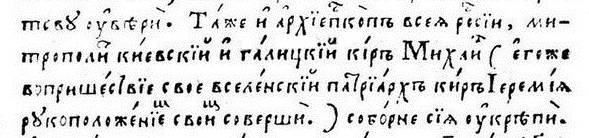 тєву оувѣри. Таже и архїепⷭ҇копъ всея росїи, ми-
трополи҇ кїевскїй и галицкїй кїръ Михаи҇ (егоже
вопришествїе свое вселенскїй патрїархъ кїръ Іеремїя
рукоположенїеⷨ҇ свои҇ соверши.) соборне сїя оукрѣпи.